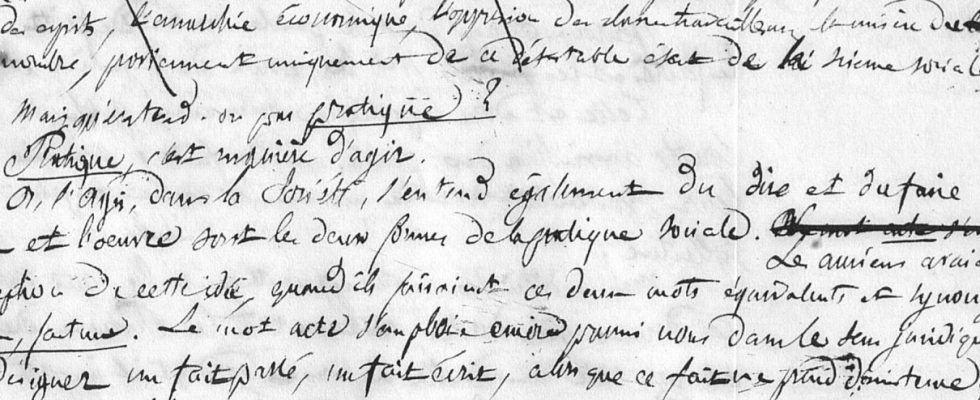 des esprits, l'anarchie économique, l'oppression des classes travailleuses, la misère du
nombre, proviennent uniquement de ce détestable état de la science sociale
Mais qu'entend-on par pratique ?
Pratique, c'est manière d'agir.
Or, l'agir, dans la société, s'entend également du dire et du faire
et l'oeuvre sont les deux formes de la pratique sociale.
Les anciens avaie
de cette idée, quand ils faisaient ces deux mots équivalents et synon
facture. Le mot acte s'emploie encore parmi nous dans le sens juridiqu
désigner un fait passé, un fait écrit, alors que ce fait ne